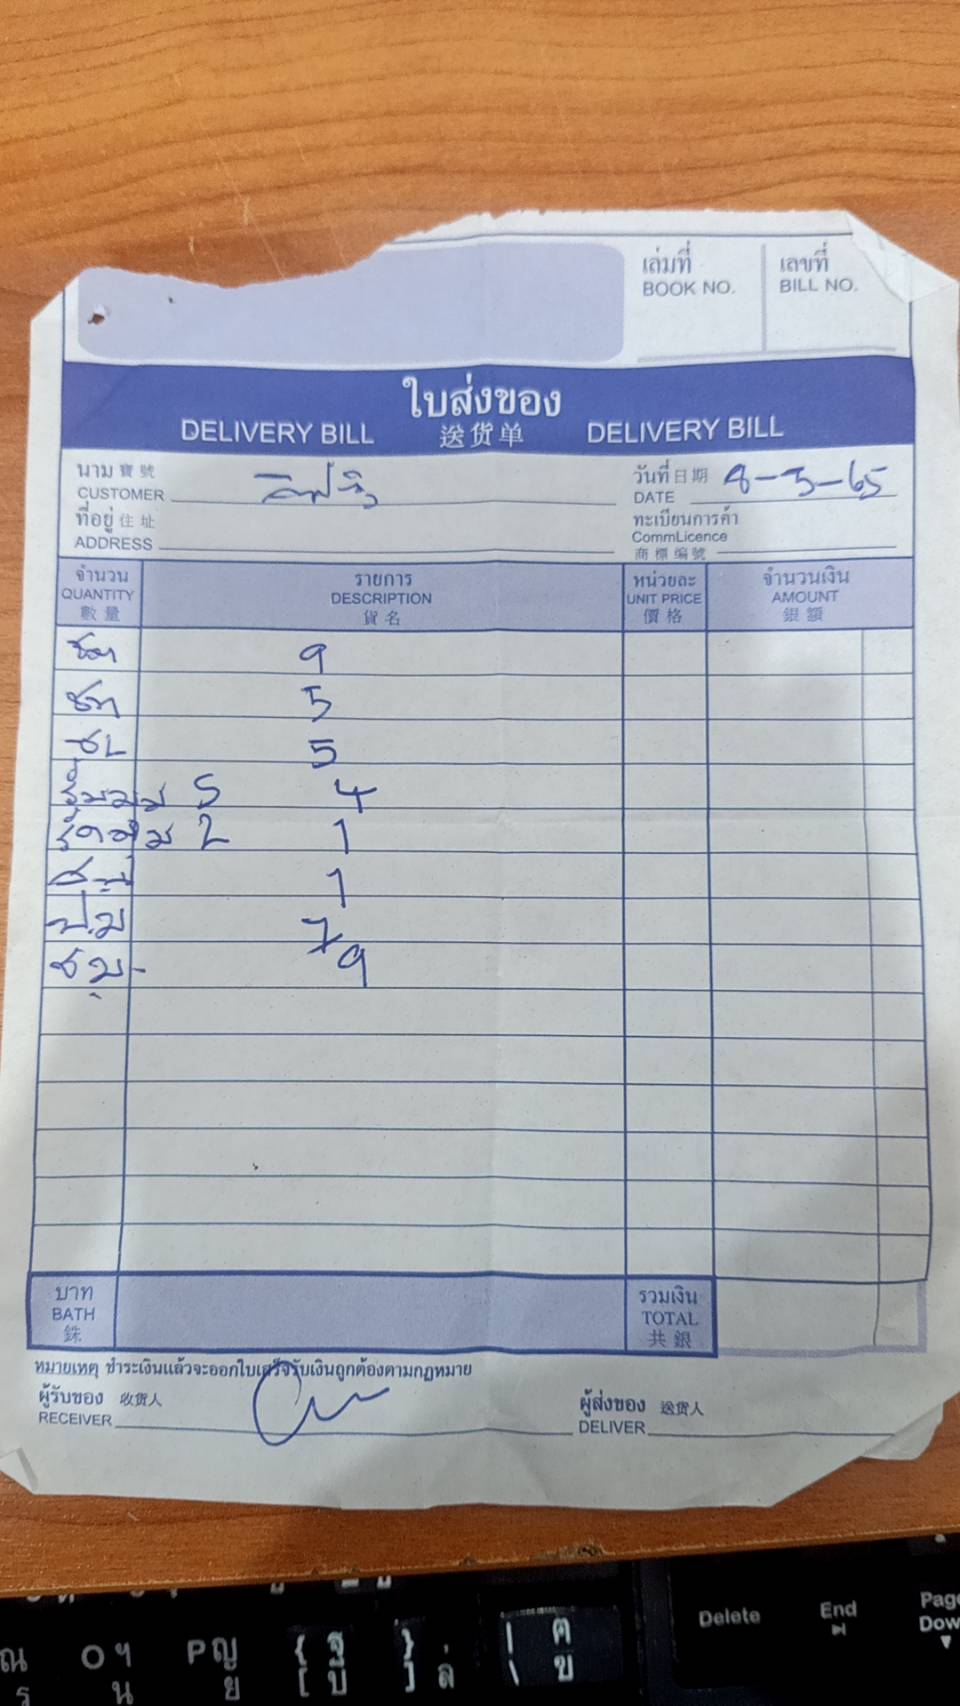 เล่มที่ เลขที่
BOOK NO. BILL NO.
ใบส่งของ
DELIVERY BILL 送货单 DELIVERY BILL
นาม 寶號 วันที่ 日期 8-3-65
CUSTOMER DATE
ที่อยู่ 住址 ทะเบียนการค้า
ADDRESS CommLicence
商標编號
จำนวน รายการ หน่วยละ จำนวนเงิน
QUANTITY DESCRIPTION UNIT PRICE AMOUNT
數量 貨名 價格 銀額
9
5
5
5 4
2 1
1
ป.ม 7
9
บาท รวมเงิน
BATH TOTAL
銖 共銀
หมายเหตุ ชำระเงินแล้วจะออกใบเสร็จรับเงินถูกต้องตามกฎหมาย
ผู้รับของ 收货人 ผู้ส่งของ 送货人
RECEIVER DELIVER
Delete End Page
Dow
ณ O ฯ P ญ { ฐ } | ฅ
ร น ย [ บ ] ล \ ฃ